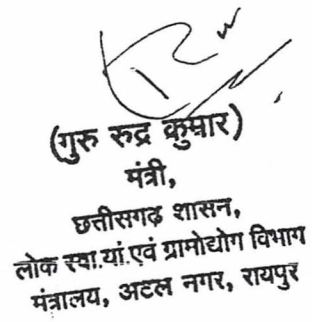 (गुरु रुद्र कुमार)
मंत्री,
छत्तीसगढ़ शासन,
लोक स्वा.यां.एवं ग्रामोद्योग विभाग
मंत्रालय, अटल नगर, रायपुर